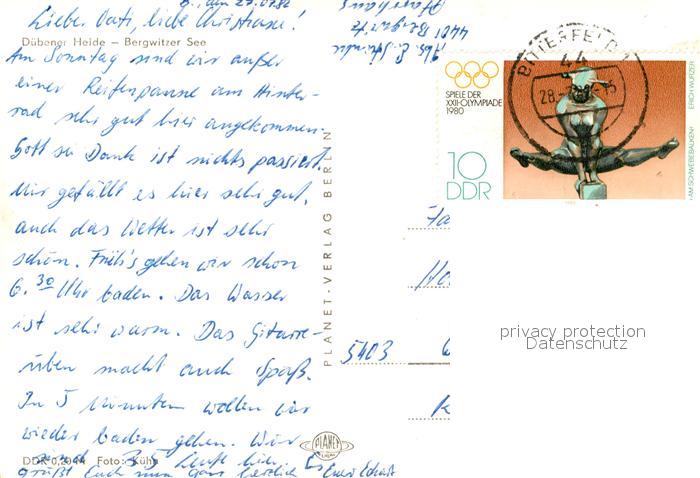 Liebe Vati, liebe Christiane!
Dübener Heide – Bergwitzer See
Am Sonntag sind wir außer
einer Reifenpanne am Hinter-
rad sehr gut hier angekommen.
Gott sei Dank ist nichts passiert.
Mir gefällt es hier sehr gut,
auch das Wetter ist sehr
schön. Früh's gehen wir schon
6.30 Uhr baden. Das Wasser
ist sehr warm. Das Gitarre-
üben macht auch Spaß.
In 5 Minuten wollen wir
wieder baden gehen. Wir
DDR Foto: Kühn
grüßt Euch nun ganz herzlich
Euer
PLANET-VERLAG BERLIN
PLANET
Abs. E.
4401
BITTERFELD 1
44
SPIELE DER
XXII.OLYMPIADE
1980
10
DDR
ERICH WURZER
·AM SCHWEBEBALKEN·
5403
privacy protection
Datenschutz